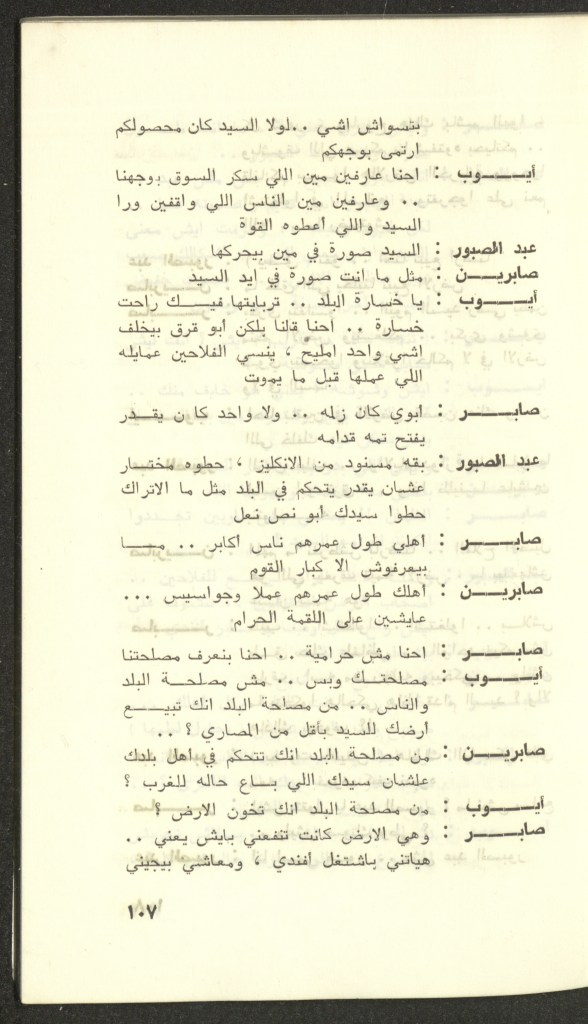 بتسواش اشي ..لولا السيد كان محصولكم
ارتمى بوجهكم
أيـــوب : احنا عارفين مين اللي سكر السوق بوجهنا
.. وعارفين مين الناس اللي واقفين ورا
السيد واللي أعطوه القوة
عبد الصبور : السيد صورة في مين بيحركها
صابريـــن : مثل ما انت صورة في ايد السيد
أيـــوب : يا خسارة البلد .. تربايتها فيـــك راحت
خسارة .. احنا قلنا بلكن ابو قرق بيخلف
اشي واحد امليح ، ينسي الفلاحين عمايله
اللي عملها قبل ما يموت
صابـــر : ابوي كان زلمه .. ولا واحد كا ن يقـــدر
يفتح تمه قدامه
عبد الصبور : بقه مسنود من الانكليز ، حطوه مختـــار
عشان يقدر يتحكم في البلد مثل ما الاتراك
حطوا سيدك ابو نص نعل
صابـــر : اهلي طول عمرهم ناس أكابر .. مـــا
بيعرفوش الا كبار القوم
صابريـــن : أهلك طول عمرهم عملا وجواسيس ...
عايشين على اللقمة الحرام
صابـــر : احنا مش حرامية .. احنا بنعرف مصلحتنا
أيـــوب : مصلحتـــك وبس .. مش مصلحـــة البلد
والناس .. من مصلحة البلد انك تبيـــع
أرضك للسيد بأقل من المصاري ؟ ..
صابريـــن : من مصلحة البلد انك تتحكم في اهل بلدك
علشان سيدك اللي بـــاع حاله للغرب ؟
أيـــوب : من مصلحة البلد انك تخون الارض ؟
صابـــر : وهي الارض كانت تنفعني بايش يعني ..
هياتني باشتغل أفندي ، ومعاشي بيجيني
١٠٧